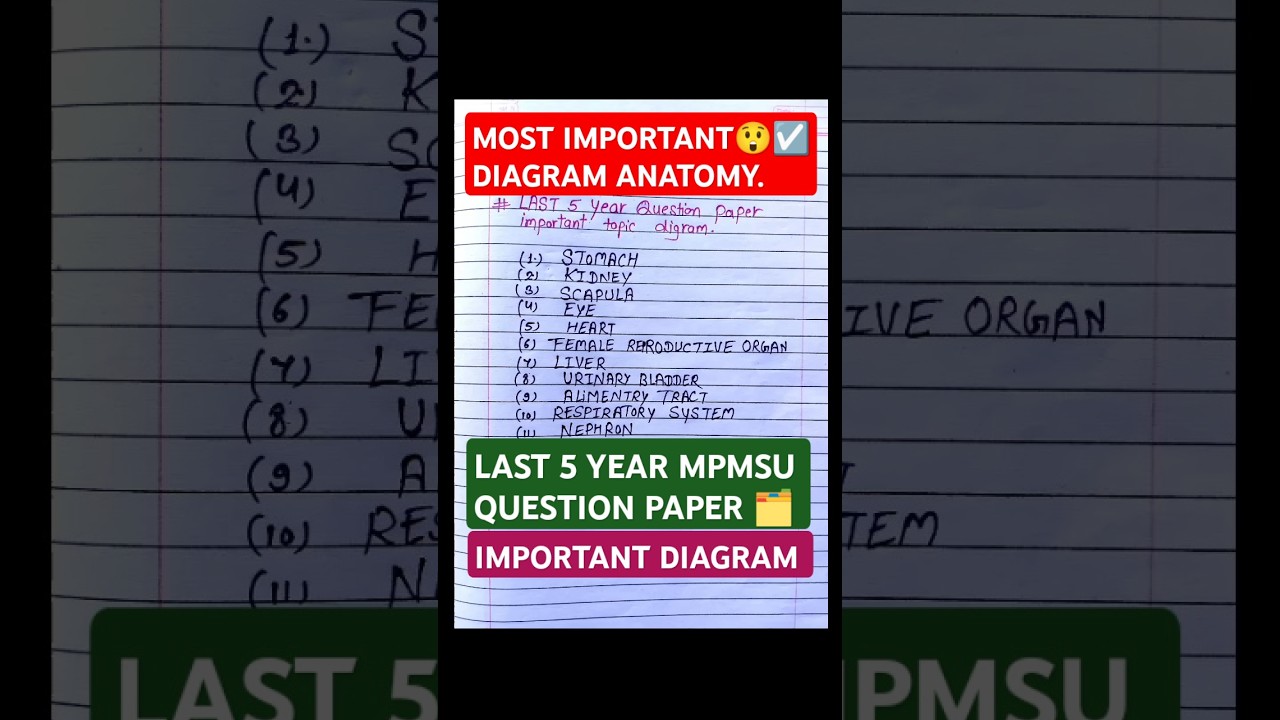 MOST IMPORTANT😲☑️
DIAGRAM ANATOMY.
# LAST 5 Year Question paper
important topic digram.
(1.) STOMACH
(2) KIDNEY
(3) SCAPULA
(4) EYE
(5) HEART
(6) FEMALE REPRODUCTIVE ORGAN
(7) LIVER
(8) URINARY BLADDER
(9) ALIMENTRY TRACT
(10) RESPIRATORY SYSTEM
(11) NEPHRON
LAST 5 YEAR MPMSU
QUESTION PAPER 🗂️
IMPORTANT DIAGRAM
(1.) S
(2) K
(3) SC
(4) E
(5) H
(6) FE IVE ORGAN
(7) LI
(8) U
(9) A
(10) RES TEM
(11) N
LAST 5 MPMSU